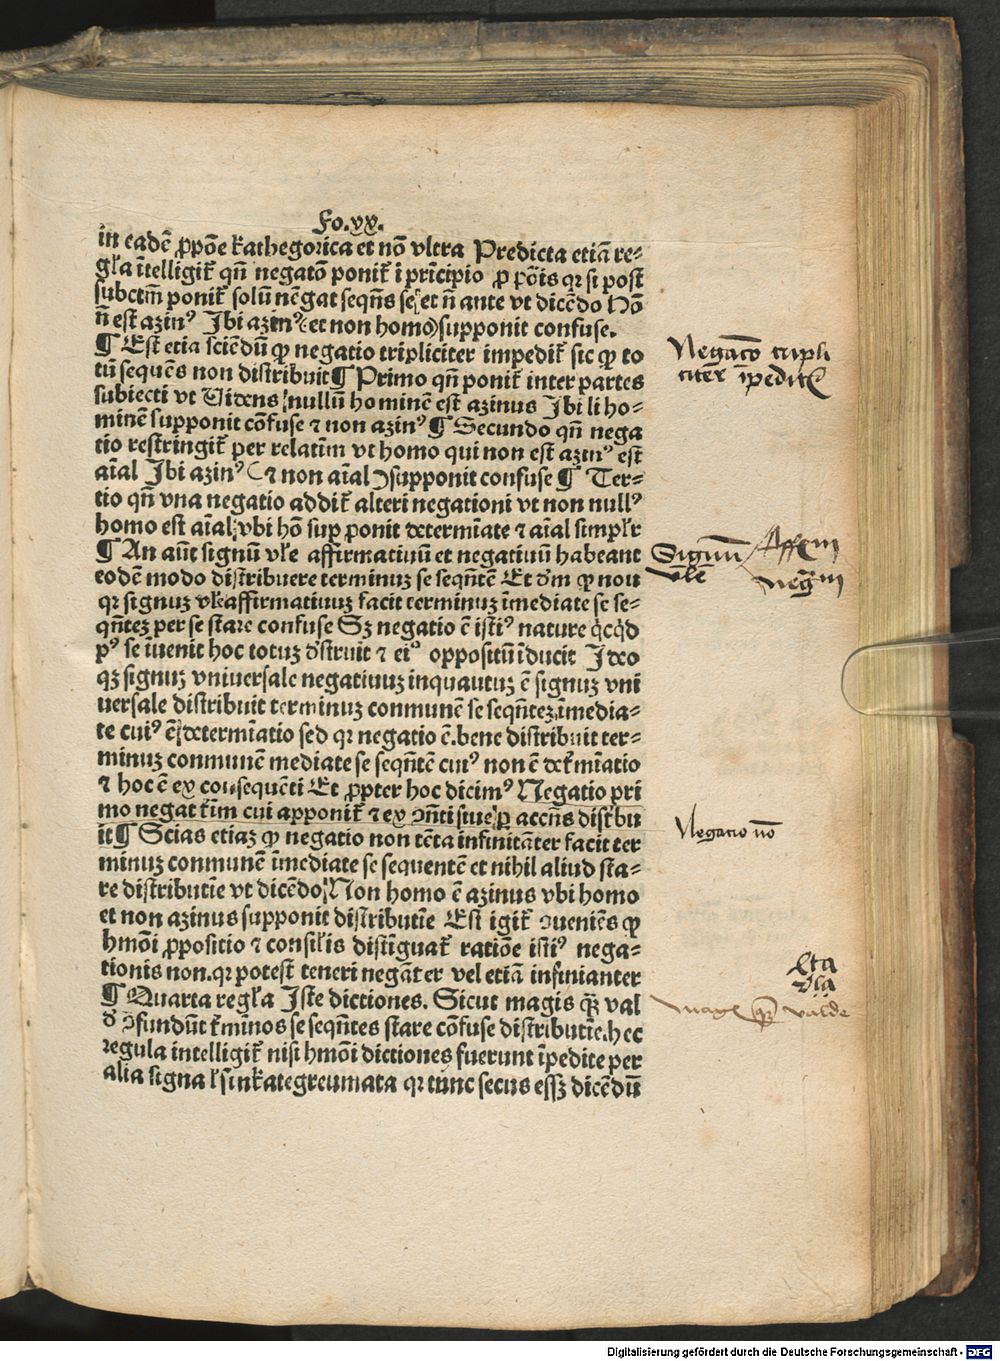 Fo.xx.
in eadē ꝓpōe kathegorica et nō vltra Predicta etiā re-
gl̄a ītelligit᷑ qn̄ negatō ponit᷑ ī principio ꝓ pōis qꝛ si post
subctm̄ ponit᷑ solū nēgat seqn̄s se et n̄ ante vt dicēdo Nō
n̄ est azinꝰ Ibi azinꝰ (et non homo) supponit confuse.
¶ Est etia sciendū ꝙ negatio tripliciter impedit᷑ sic ꝙ to
tū sequēs non distribuit ¶ Primo qn̄ ponit᷑ inter partes
subiecti vt Uidens nullū hominē est azinus Ibi li ho-
minē supponit cōfuse ⁊ non azinꝰ ¶ Secundo qn̄ nega
tio restringit᷑ per relatīm vt homo qui non est azinꝰ est
aīal Ibi azinꝰ (⁊ non aīal) supponit confuse ¶ Ter-
tio qn̄ vna negatio addit᷑ alteri negationi vt non nullꝰ
homo est aīal vbi hō sup ponit determīate ⁊ aīal simpl᷑r
¶ An aūt signū vl᷑e affirmatiuū et negatiuū habeant
eodē modo distribuere terminuꝫ se seqn̄tē Et d̄m ꝙ non
qꝛ signuꝫ vl᷑e affirmatiuuꝫ facit terminuꝫ īmediate se se-
qn̄teꝫ per se stare confuse Sꝫ negatio ē istiꝰ nature qͥcqͥd
pꝰ se īuenit hoc totuꝫ d̓struit ⁊ eiꝰ oppositū īducit Ideo
qꝫ signuꝫ vniuersale negatiuuꝫ inquantuꝫ ē signuꝫ vni
uersale distribuit terminuꝫ conmunē se seqn̄teꝫ īmedia-
te cuiꝰ ē determīatio sed qꝛ negatio ē. bene distribuit ter-
minuꝫ conmunē mediate se seqn̄tē cuiꝰ non ē det᷑mīatio
⁊ hoc ē ex consequēti Et ꝓpter hoc dicimꝰ Negatio pri
mo negat t᷑im cui apponit᷑ ⁊ ex ꝯn̄ti siue ꝑ accn̄s distribu
it ¶ Scias etiaꝫ ꝙ negatio non tēta infinitāter facit ter
minuꝫ conmunē īmediate se sequentē et nihil aliud sta-
re distributīe vt dicēdo Non homo ē azinus vbi homo
et non azinus supponit distributīe Est igit᷑ ꝯueniēs ꝙ
hmōi ꝓpositio ⁊ consil᷑is distīguat᷑ ratiōe istiꝰ nega-
tionis non. qꝛ potest teneri negāter vel etiā infinianter
¶ Quarta regl̄a Iste dictiones. Sicut magis qͣꝫ val
d̓ ꝯfundūt t᷑minos se seqn̄tes stare cōfuse distributīe. hec
regula intelligit᷑ nisi hmōi dictiones fuerunt īpedite per
alia signa l᷑ sinkategreumata qꝛ tunc secus essꝫ dicēdū
Negatō tripli
citer īpedit᷑
Signū vl᷑e
Affm
Negm
Negatio nō
Magis qͣꝫ valde